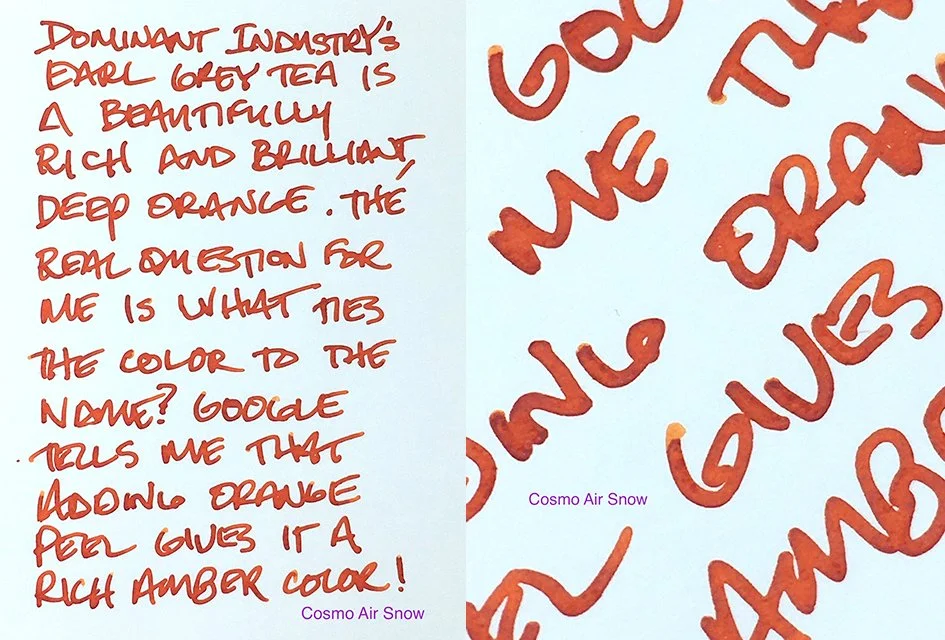 DOMINANT INDUSTRY'S
EARL GREY TEA IS
A BEAUTIFULLY
RICH AND BRILLIANT,
DEEP ORANGE. THE
REAL QUESTION FOR
ME IS WHAT TIES
THE COLOR TO THE
NAME? GOOGLE
TELLS ME THAT
ADDING ORANGE
PEEL GIVES IT A
RICH AMBER COLOR!
Cosmo Air Snow
GOO
TH
ME
ORAN
DING
GIVES
Cosmo Air Snow
EL
AMBE